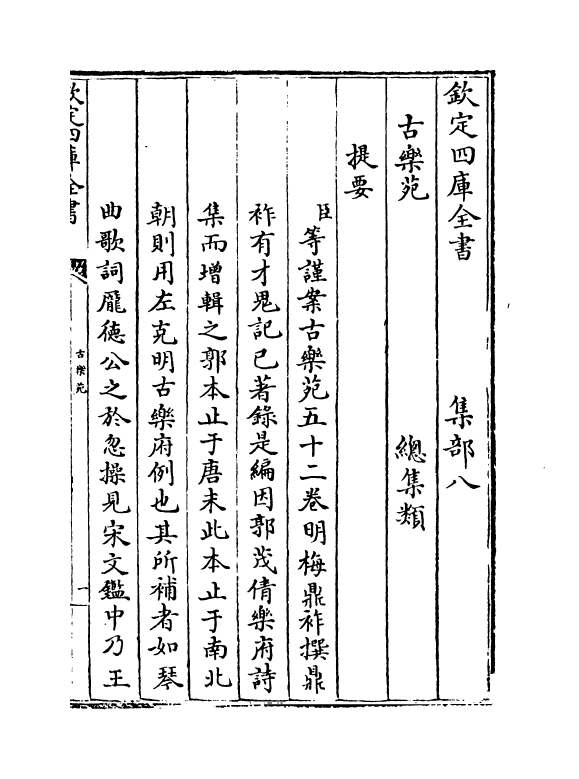 欽定四庫全書 集部八
古樂苑 總集類
提要
臣等謹案古樂苑五十二卷明梅鼎祚撰鼎
祚有才鬼記已著錄是編因郭茂倩樂府詩
集而增輯之郭本止于唐末此本止于南北
朝則用左克明古樂府例也其所補者如琴
曲歌詞龎德公之於忽操見宋文鑑中乃王
欽定四庫全書
古樂苑
一